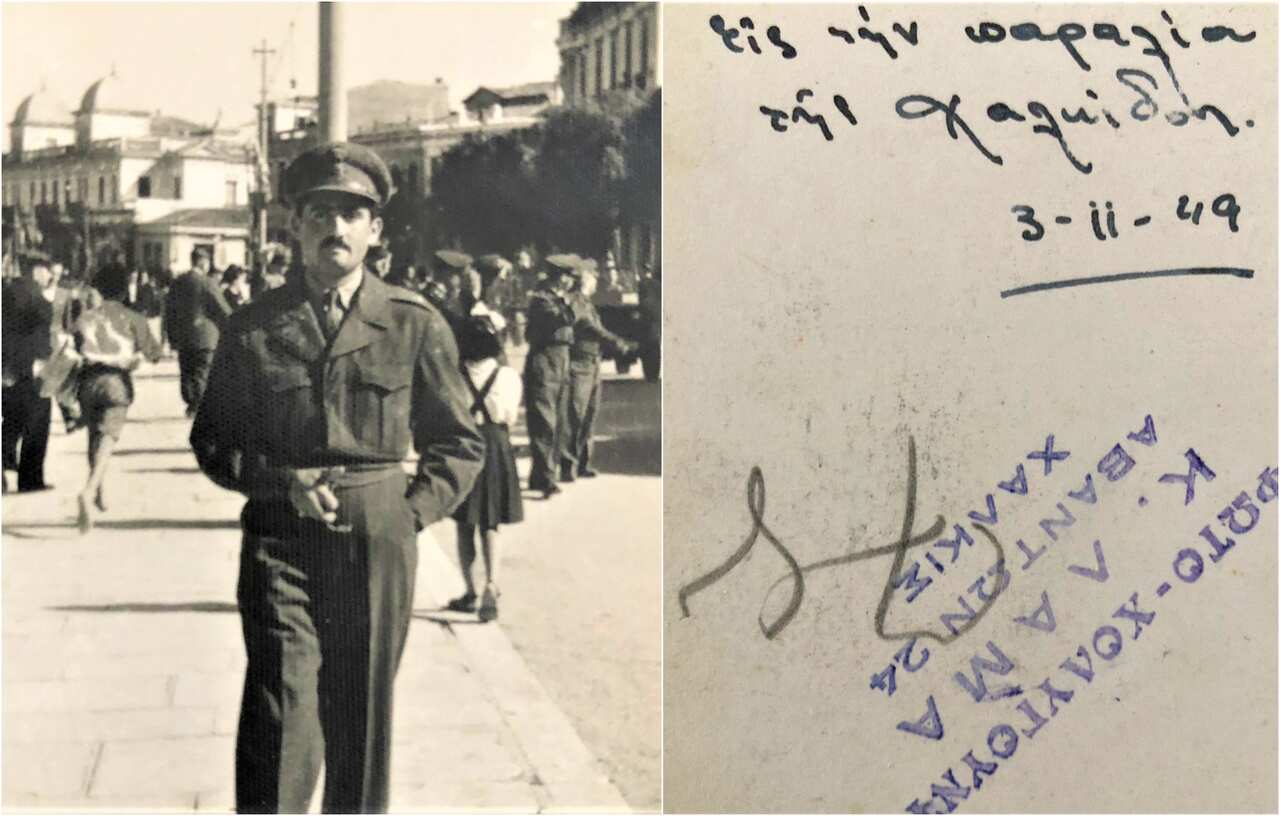 εἰς τὴν παραλία
τῆς Χαλκίδος.
3-11-49
ΦΩΤΟ-ΧΟΛΛΥΓΟΥΝΤ
Κ. ΛΑΜΑ
ΑΒΑΝΤΩΝ 24
ΧΑΛΚΙΣ